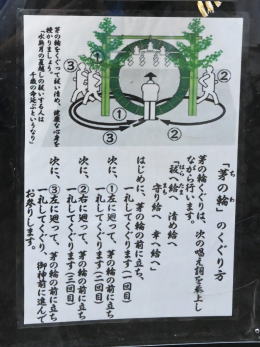 「茅の輪」のくぐり方
ち わ
茅の輪くぐりは、次の唱え詞を奉上し
ながら行います。
「祓給へ 清め給へ
守り給へ 幸へ給へ」
はじめに、茅の輪の前に立ち、
一礼してくぐります(一回目)
次に、①左に廻って、茅の輪の前に立ち
一礼してくぐります(二回目)
次に、②右に廻って、茅の輪の前に立ち
一礼してくぐります(三回目)
次に、③左に廻って、茅の輪の前に立ち
一礼してくぐり、御神前に進んで
お参りします。
茅の輪をくぐって祓い清め、健康な心身を
授かりましょう。
「水無月の夏越しの祓いする人は
千歳の命延ぶというなり」
③
②
①
①
③
②